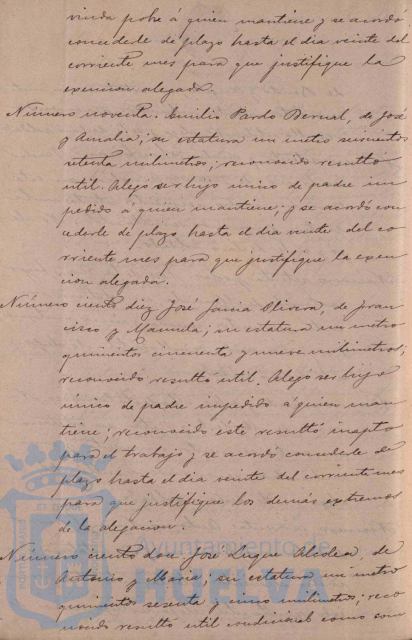 viuda pobre á quien mantiene y se acordó
concederle de plazo hasta el dia veinte del
corriente mes para que justifique la
exencion alegada.
Número noventa. Emilio Pardo Bernal, de José
y Amalia; su estatura un metro seiscientos
setenta milimetros; reconocido resultó
util. Alegó ser hijo único de padre im
pedido á quien mantiene; y se acordó con
cederle de plazo hasta el dia veinte del co
rriente mes para que justifique la exen
cion alegada.
Número ciento diez José Garcia Olivera, de Fran
cisco y Manuela; su estatura un metro
quinientos cincuenta y nueve milimetros;
reconocido resultó util. Alegó ser hijo
único de padre impedido á quien man
tiene; reconocido éste resultó inapto
para el trabajo y se acordó concederle de
plazo hasta el dia veinte del corriente mes
para que justifique los demás extremos
de la alegacion.
Número ciento dos José Luque de
Antonio y Maria; su estatura un metro
quinientos sesenta y cinco milimetros; reco
nocido resultó util condicional como com
Ayuntamiento de
HUELVA